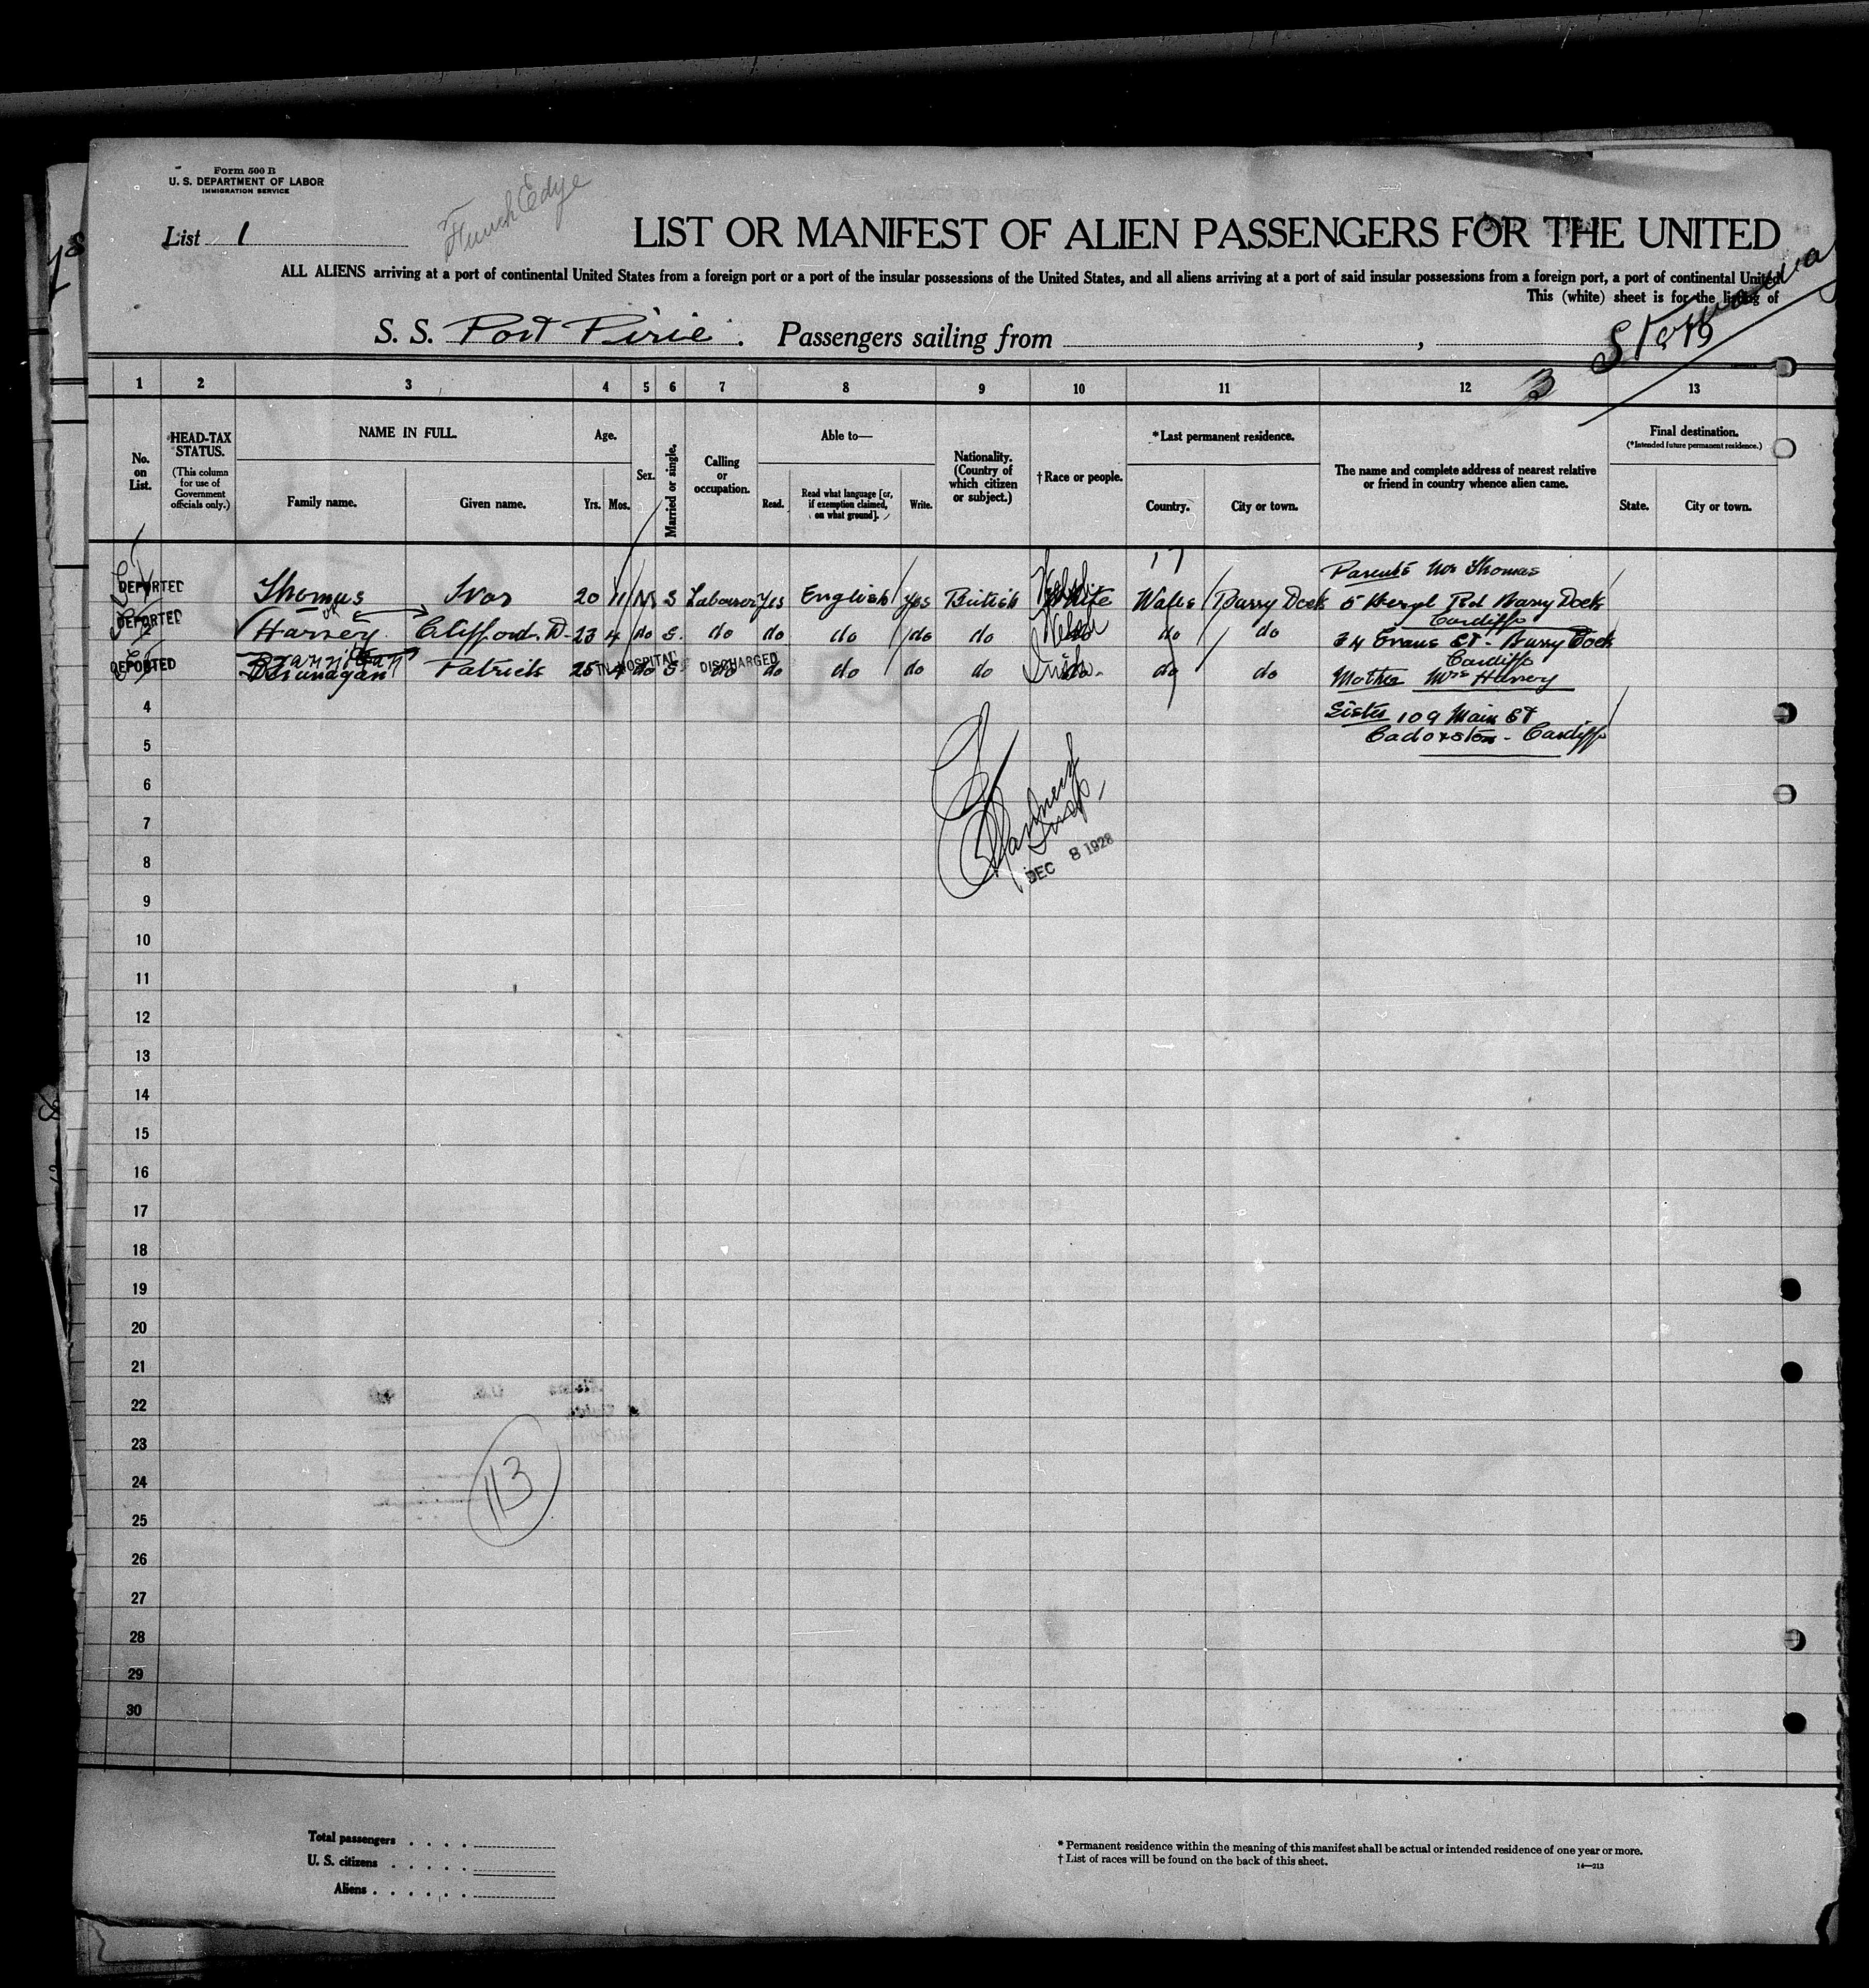 Form 500 B
U. S. DEPARTMENT OF LABOR
IMMIGRATION SERVICE
List 1
LIST OR MANIFEST OF ALIEN PASSENGERS FOR THE UNITED
ALL ALIENS arriving at a port of continental United States from a foreign port or a port of the insular possessions of the United States, and all aliens arriving at a port of said insular possessions from a foreign port, a port of continental United
This (white) sheet is for the listing of
S. S. Port Pirie. Passengers sailing from ,
1 2 3 4 5 6 7 8 9 10 11 12 3 13
No. on List.
HEAD-TAX STATUS.
(This column for use of Government officials only.)
NAME IN FULL.
Family name. Given name.
Age.
Yrs. Mos.
Sex.
Married or single.
Calling or occupation.
Able to—
Read. Read what language [or, if exemption claimed, on what ground]. Write.
Nationality. (Country of which citizen or subject.)
†Race or people.
*Last permanent residence.
Country. City or town.
The name and complete address of nearest relative or friend in country whence alien came.
Final destination.
(*Intended future permanent residence.)
State. City or town.
17
Parents Mr Thomas
DEPORTED Thomas Ivor 20 11 M S Labourer Yes English Yes British White Wales Barry Dock 5 Rd Barry Dock
Cardiff
DEPORTED or Harvey Clifford. D- 23 4 do S. do do do do do do do 34 Evans St - Barry Dock
Cardiff
DEPORTED Brannigan Patrick 25 4 IN HOSPITAL do S DISCHARGED do do do do do Irish. do do Mother Mrs Harvey
4 Sister 109 Main St
Cadoxston - Cardiff
5
6
7
DEC 8 1928
8
9
10
11
12
13
14
15
16
17
18
19
20
21
22
23
24
113
25
26
27
28
29
30
Total passengers . . . .
U. S. citizens . . . . .
Aliens . . . . . .
* Permanent residence within the meaning of this manifest shall be actual or intended residence of one year or more.
† List of races will be found on the back of this sheet.
14—213